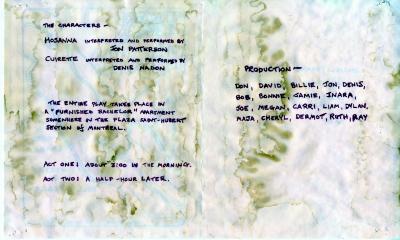 THE CHARACTERS —
HOSANNA INTERPRETED AND PERFORMED BY
JON PATTERSON
CUIRETTE INTERPRETED AND PERFORMED BY
DENIS NADON
THE ENTIRE PLAY TAKES PLACE IN
A "FURNISHED BACHELOR" APARTMENT
SOMEWHERE IN THE PLAZA SAINT-HUBERT
SECTION OF MONTREAL.
ACT ONE: ABOUT 3:00 IN THE MORNING.
ACT TWO: A HALF-HOUR LATER.
PRODUCTION —
DON, DAVID, BILLIE, JON, DENIS,
BOB, BONNIE, JAMIE, INARA,
JOE, MEGAN, CARRI, LIAM, DYLAN,
MAJA, CHERYL, DERMOT, RUTH, RAY